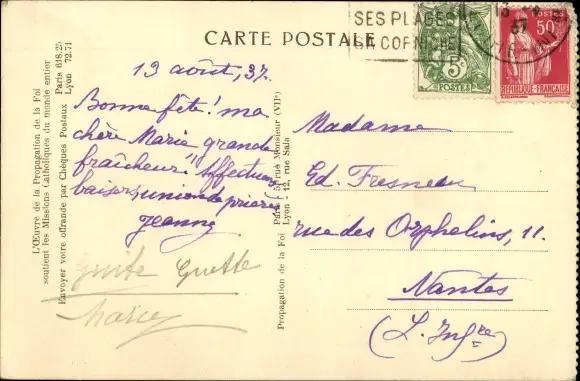 CARTE POSTALE
SES PLAGES
LA CORNICHE
37
5c
POSTES
POSTES
50c
REPUBLIQUE FRANÇAISE
L'Œuvre de la Propagation de la Foi
soutient les Missions Catholiques du monde entier
Envoyer votre offrande par Chèques Postaux Paris 618.25
Lyon 72.71
13 août, 37.
Bonne fête ! ma
chère Marie grande
fraîcheur ! Affectueux
baisers, union de prières
Jeanne
Guette
Marie
Propagation de la Foi Paris - 5, rue Monsieur (VIIe)
Lyon - 12, rue Sala
Madame
Ed. Fresneau
rue des Orphelins, 11.
Nantes
(L. Infre)